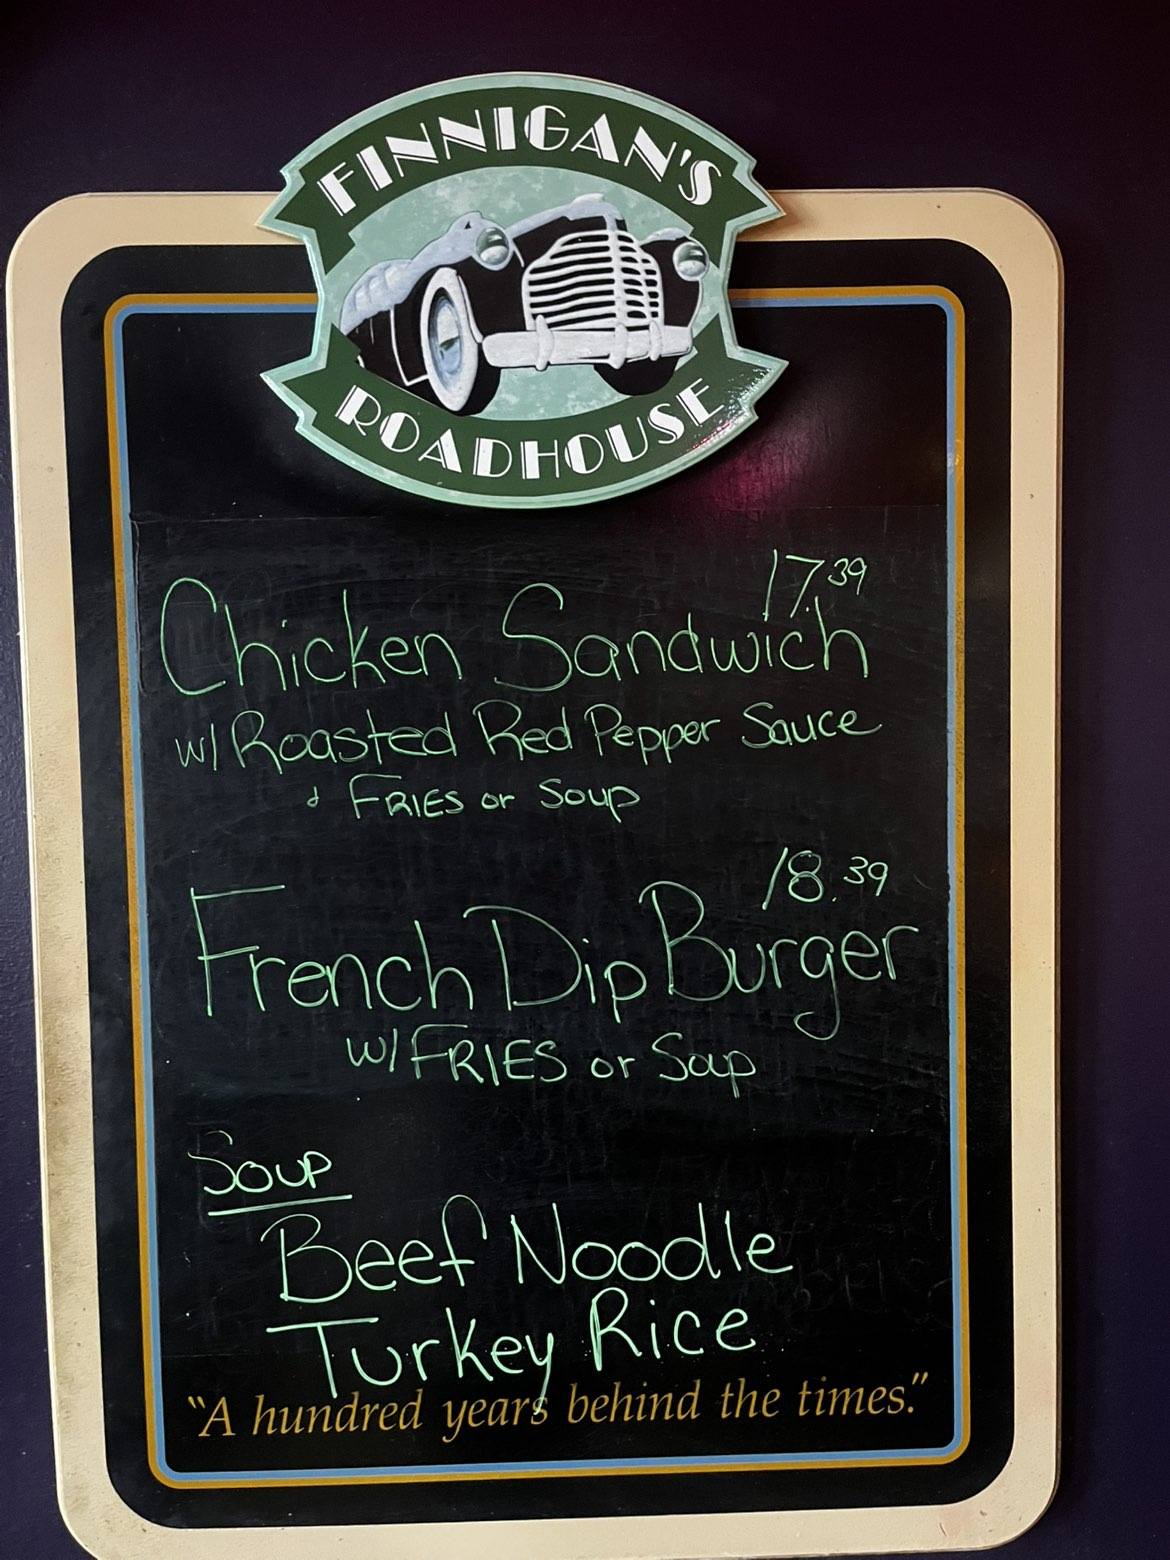 FINNIGAN'S
ROADHOUSE
17.39
Chicken Sandwich
w/ Roasted Red Pepper Sauce
& FRIES or Soup
18.39
French Dip Burger
w/ FRIES or Soup
Soup
Beef Noodle
Turkey Rice
"A hundred years behind the times."